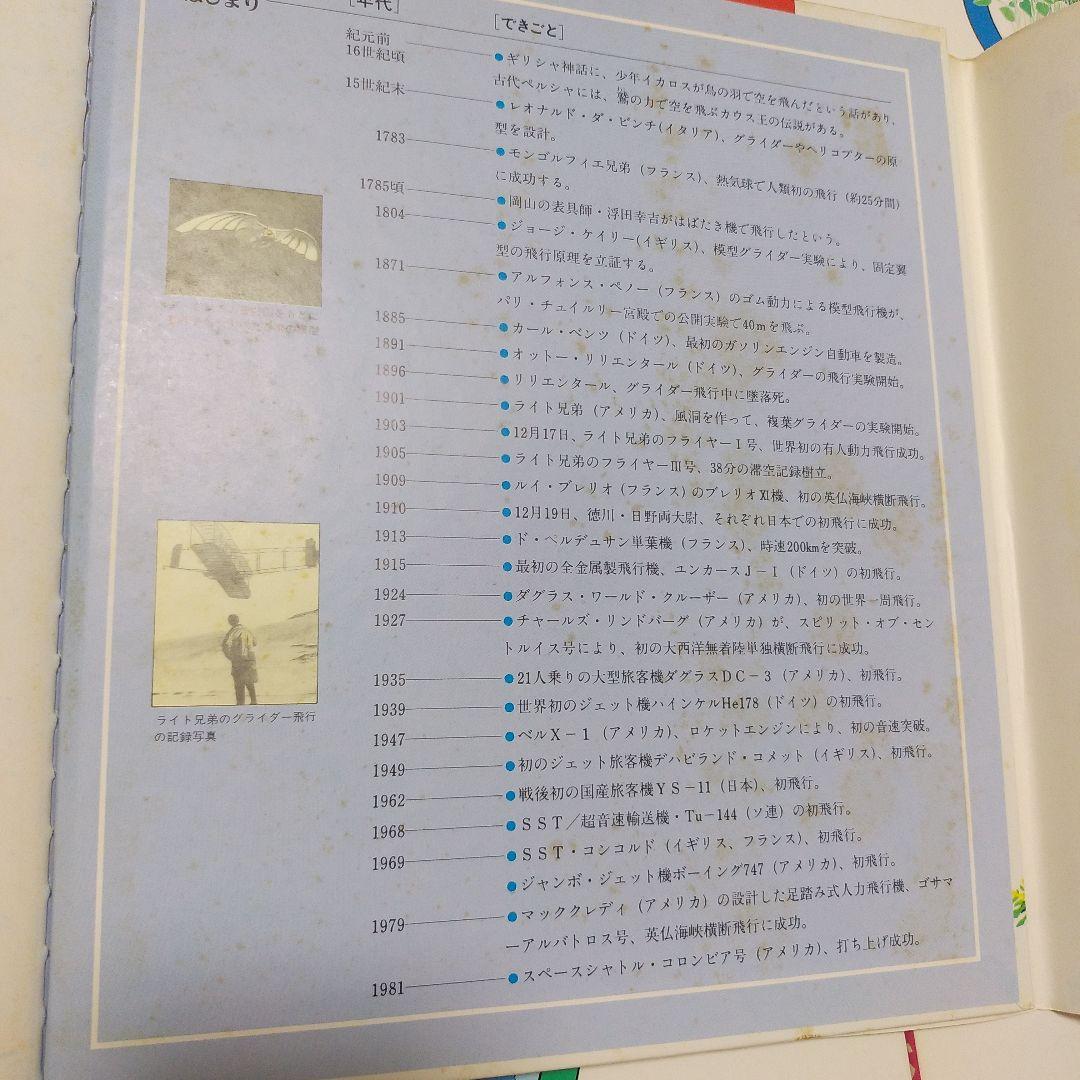 はじまり
[年代]
[できごと]
紀元前
16世紀頃
●ギリシャ神話に、少年イカロスが鳥の羽で空を飛んだという話があり、
古代ペルシャには、鷲の力で空を飛ぶカウス王の伝説がある。
15世紀末
●レオナルド・ダ・ビンチ(イタリア)、グライダーやヘリコプターの原
型を設計。
1783
●モンゴルフィエ兄弟（フランス）、熱気球で人類初の飛行（約25分間）
に成功する。
1785頃
●岡山の表具師・浮田幸吉がはばたき機で飛行したという。
1804
●ジョージ・ケイリー(イギリス)、模型グライダー実験により、固定翼
型の飛行原理を立証する。
1871
●アルフォンス・ペノー（フランス）のゴム動力による模型飛行機が、
パリ・チュイルリー宮殿での公開実験で40mを飛ぶ。
1885
●カール・ベンツ（ドイツ）、最初のガソリンエンジン自動車を製造。
1891
●オットー・リリエンタール（ドイツ）、グライダーの飛行実験開始。
1896
●リリエンタール、グライダー飛行中に墜落死。
1901
●ライト兄弟（アメリカ）、風洞を作って、複葉グライダーの実験開始。
1903
●12月17日、ライト兄弟のフライヤーⅠ号、世界初の有人動力飛行成功。
1905
●ライト兄弟のフライヤーⅢ号、38分の滞空記録樹立。
1909
●ルイ・ブレリオ（フランス）のブレリオⅪ機、初の英仏海峡横断飛行。
1910
●12月19日、徳川・日野両大尉、それぞれ日本での初飛行に成功。
1913
●ド・ペルデュサン単葉機（フランス）、時速200kmを突破。
1915
●最初の全金属製飛行機、ユンカースＪ－Ⅰ（ドイツ）の初飛行。
1924
●ダグラス・ワールド・クルーザー（アメリカ）、初の世界一周飛行。
1927
●チャールズ・リンドバーグ（アメリカ）が、スピリット・オブ・セン
トルイス号により、初の大西洋無着陸単独横断飛行に成功。
1935
●21人乗りの大型旅客機ダグラスＤＣ－３（アメリカ）、初飛行。
1939
●世界初のジェット機ハインケルHe178（ドイツ）の初飛行。
1947
●ベルＸ－１（アメリカ）、ロケットエンジンにより、初の音速突破。
1949
●初のジェット旅客機デハビランド・コメット（イギリス）、初飛行。
1962
●戦後初の国産旅客機ＹＳ－11（日本）、初飛行。
1968
●ＳＳＴ／超音速輸送機・Tu－144（ソ連）の初飛行。
1969
●ＳＳＴ・コンコルド（イギリス、フランス）、初飛行。
●ジャンボ・ジェット機ボーイング747（アメリカ）、初飛行。
1979
●マッククレディ（アメリカ）の設計した足踏み式人力飛行機、ゴサマ
ーアルバトロス号、英仏海峡横断飛行に成功。
1981
●スペースシャトル・コロンビア号（アメリカ）、打ち上げ成功。
ライト兄弟のグライダー飛行
の記録写真